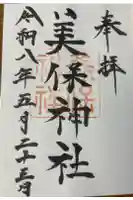 奉拝
美保神社
令和八年五月二十三日